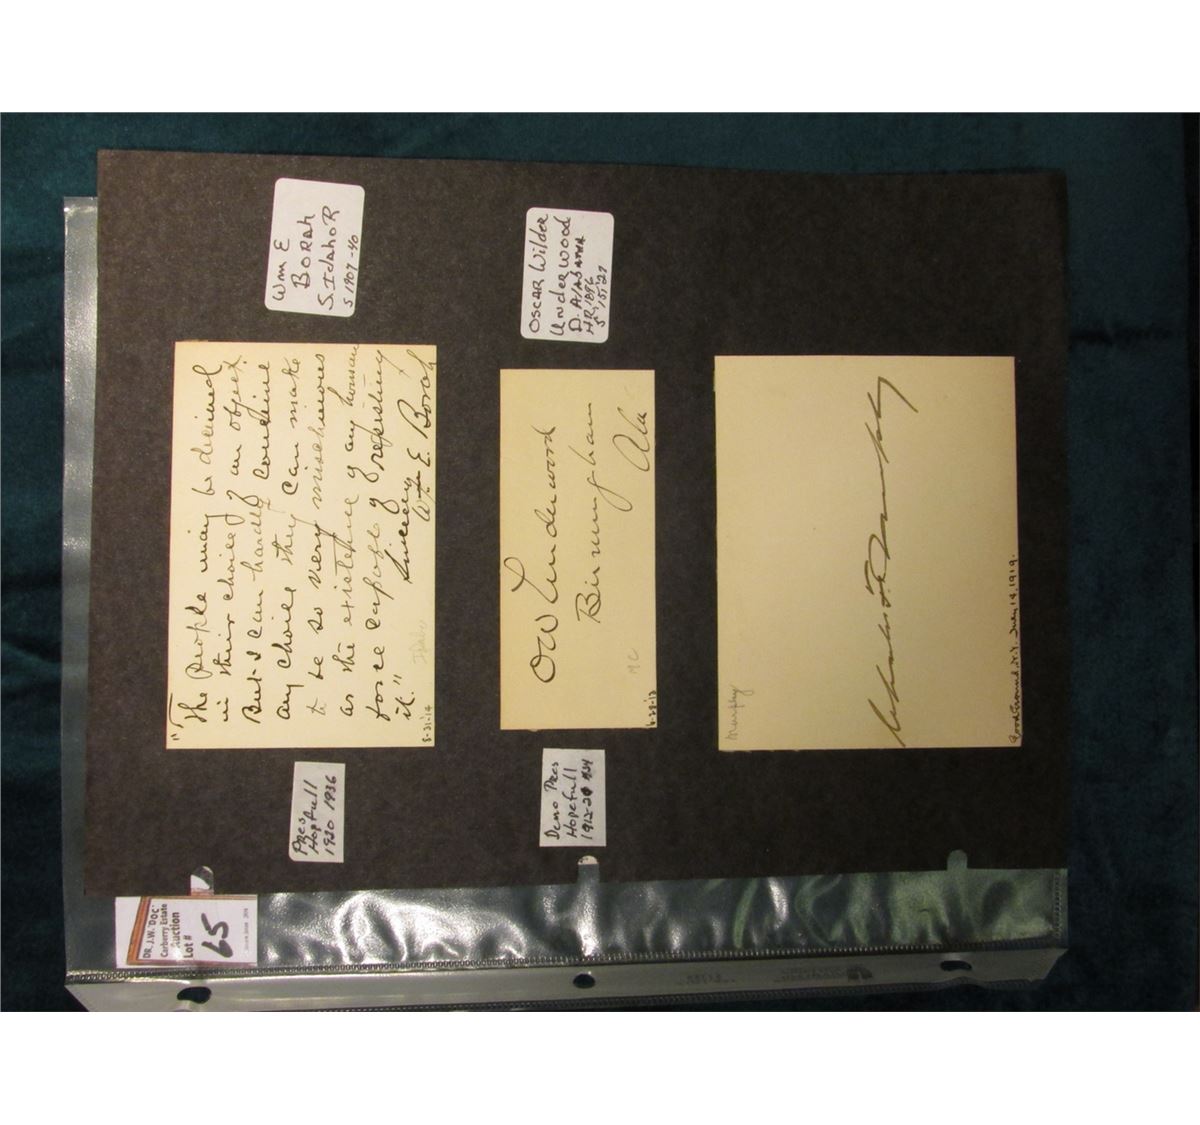 Wm E
BORAH
S. Idaho R
S 1907-40
"The people may be deceived
in their choice of an object.
But I can hardly conceive
any choice they can make
to be so very mischievous
as the existence of any human
force capable of resisting
it."
Sincerely
Wm E. Borah
Idaho
8-31-14
Pres
Hopfull
1920 1936
OSCAR Wilder
Underwood
D. Alabama
HR, 1896
S, 15, '27
OW Underwood
Birmingham
Ala
MC
6-28-12
Demo Pres
Hopefull
1912-20
Murphy
Charles F. Murphy
Good Ground, N.Y. July 14, 1919.
DR. J.W. "DOC"
Carberry Estate
Auction
Lot #
65